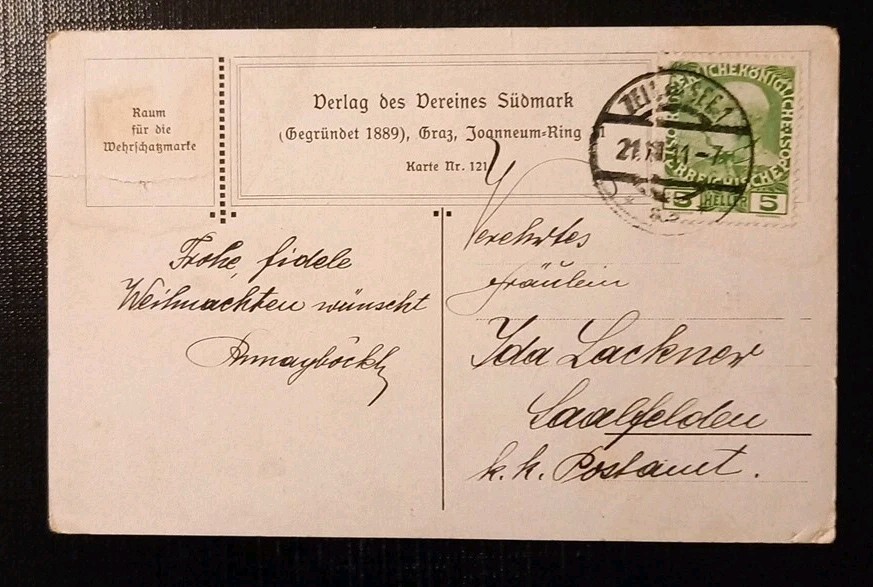 Raum
für die
Wehrschatzmarke
Verlag des Vereines Südmark
(Gegründet 1889), Graz, Joanneum-Ring 11
Karte Nr. 121
ZELL A. SEE 1
21.XII.11-7
5 HELLER 5
Frohe, fidele
Weihnachten wünscht
Verehrtes
Fräulein
Ida Lackner
Saalfelden
k. k. Postamt.